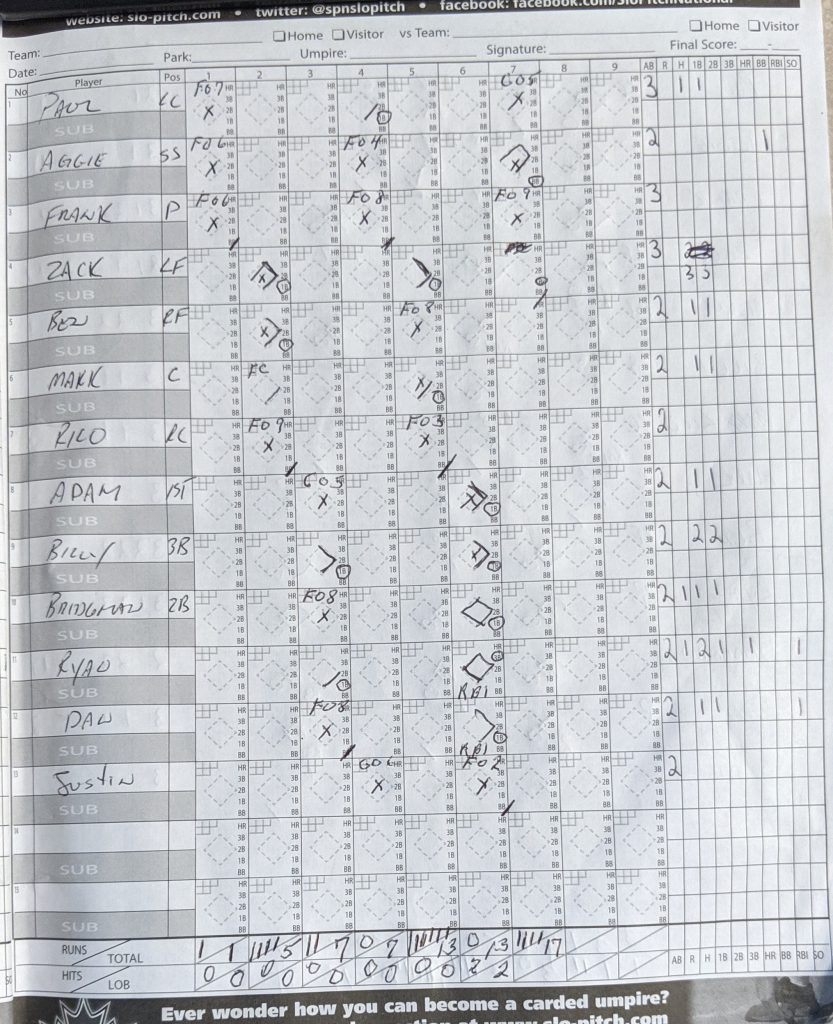 website: slo-pitch.com • twitter: @spnslopitch • facebook: facebook.com/SloPitchNational
Home Visitor vs Team: Home Visitor
Team: Park: Umpire: Signature: Final Score: -
Date:
No Player Pos 1 2 3 4 5 6 7 8 9 AB R H 1B 2B 3B HR BB RBI SO
1 PAUL LC FO7 GO5 3 1 1
SUB
2 AGGIE SS FO6 FO4 2 1
SUB
3 FRANK P FO6 FO8 FO9 3
SUB
4 ZACK LF 3
3 3
SUB
5 BEN RF FO8 2 1 1
SUB
6 MARK C FC 2 1 1
SUB
7 RICO RC FO9 FO3 2
SUB
8 ADAM 1ST GO5 2 1 1
SUB
9 BILLY 3B 2 2 2
SUB
10 BRIDGMAN 2B FO8 2 1 1 1
SUB
11 RYAN RBI 2 1 2 1 1 1
SUB
12 DAN FO8 RBI 2 1 1 1
SUB
13 JUSTIN GO6 FO2 2
SUB
14
SUB
15
SUB
RUNS TOTAL 1 1 5 7 0 7 13 0 13 17
HITS LOB 0 0 0 0 0 0 0 0 0 0 2 2 AB R H 1B 2B 3B HR BB RBI SO
Ever wonder how you can become a carded umpire?
www.slo-pitch.com